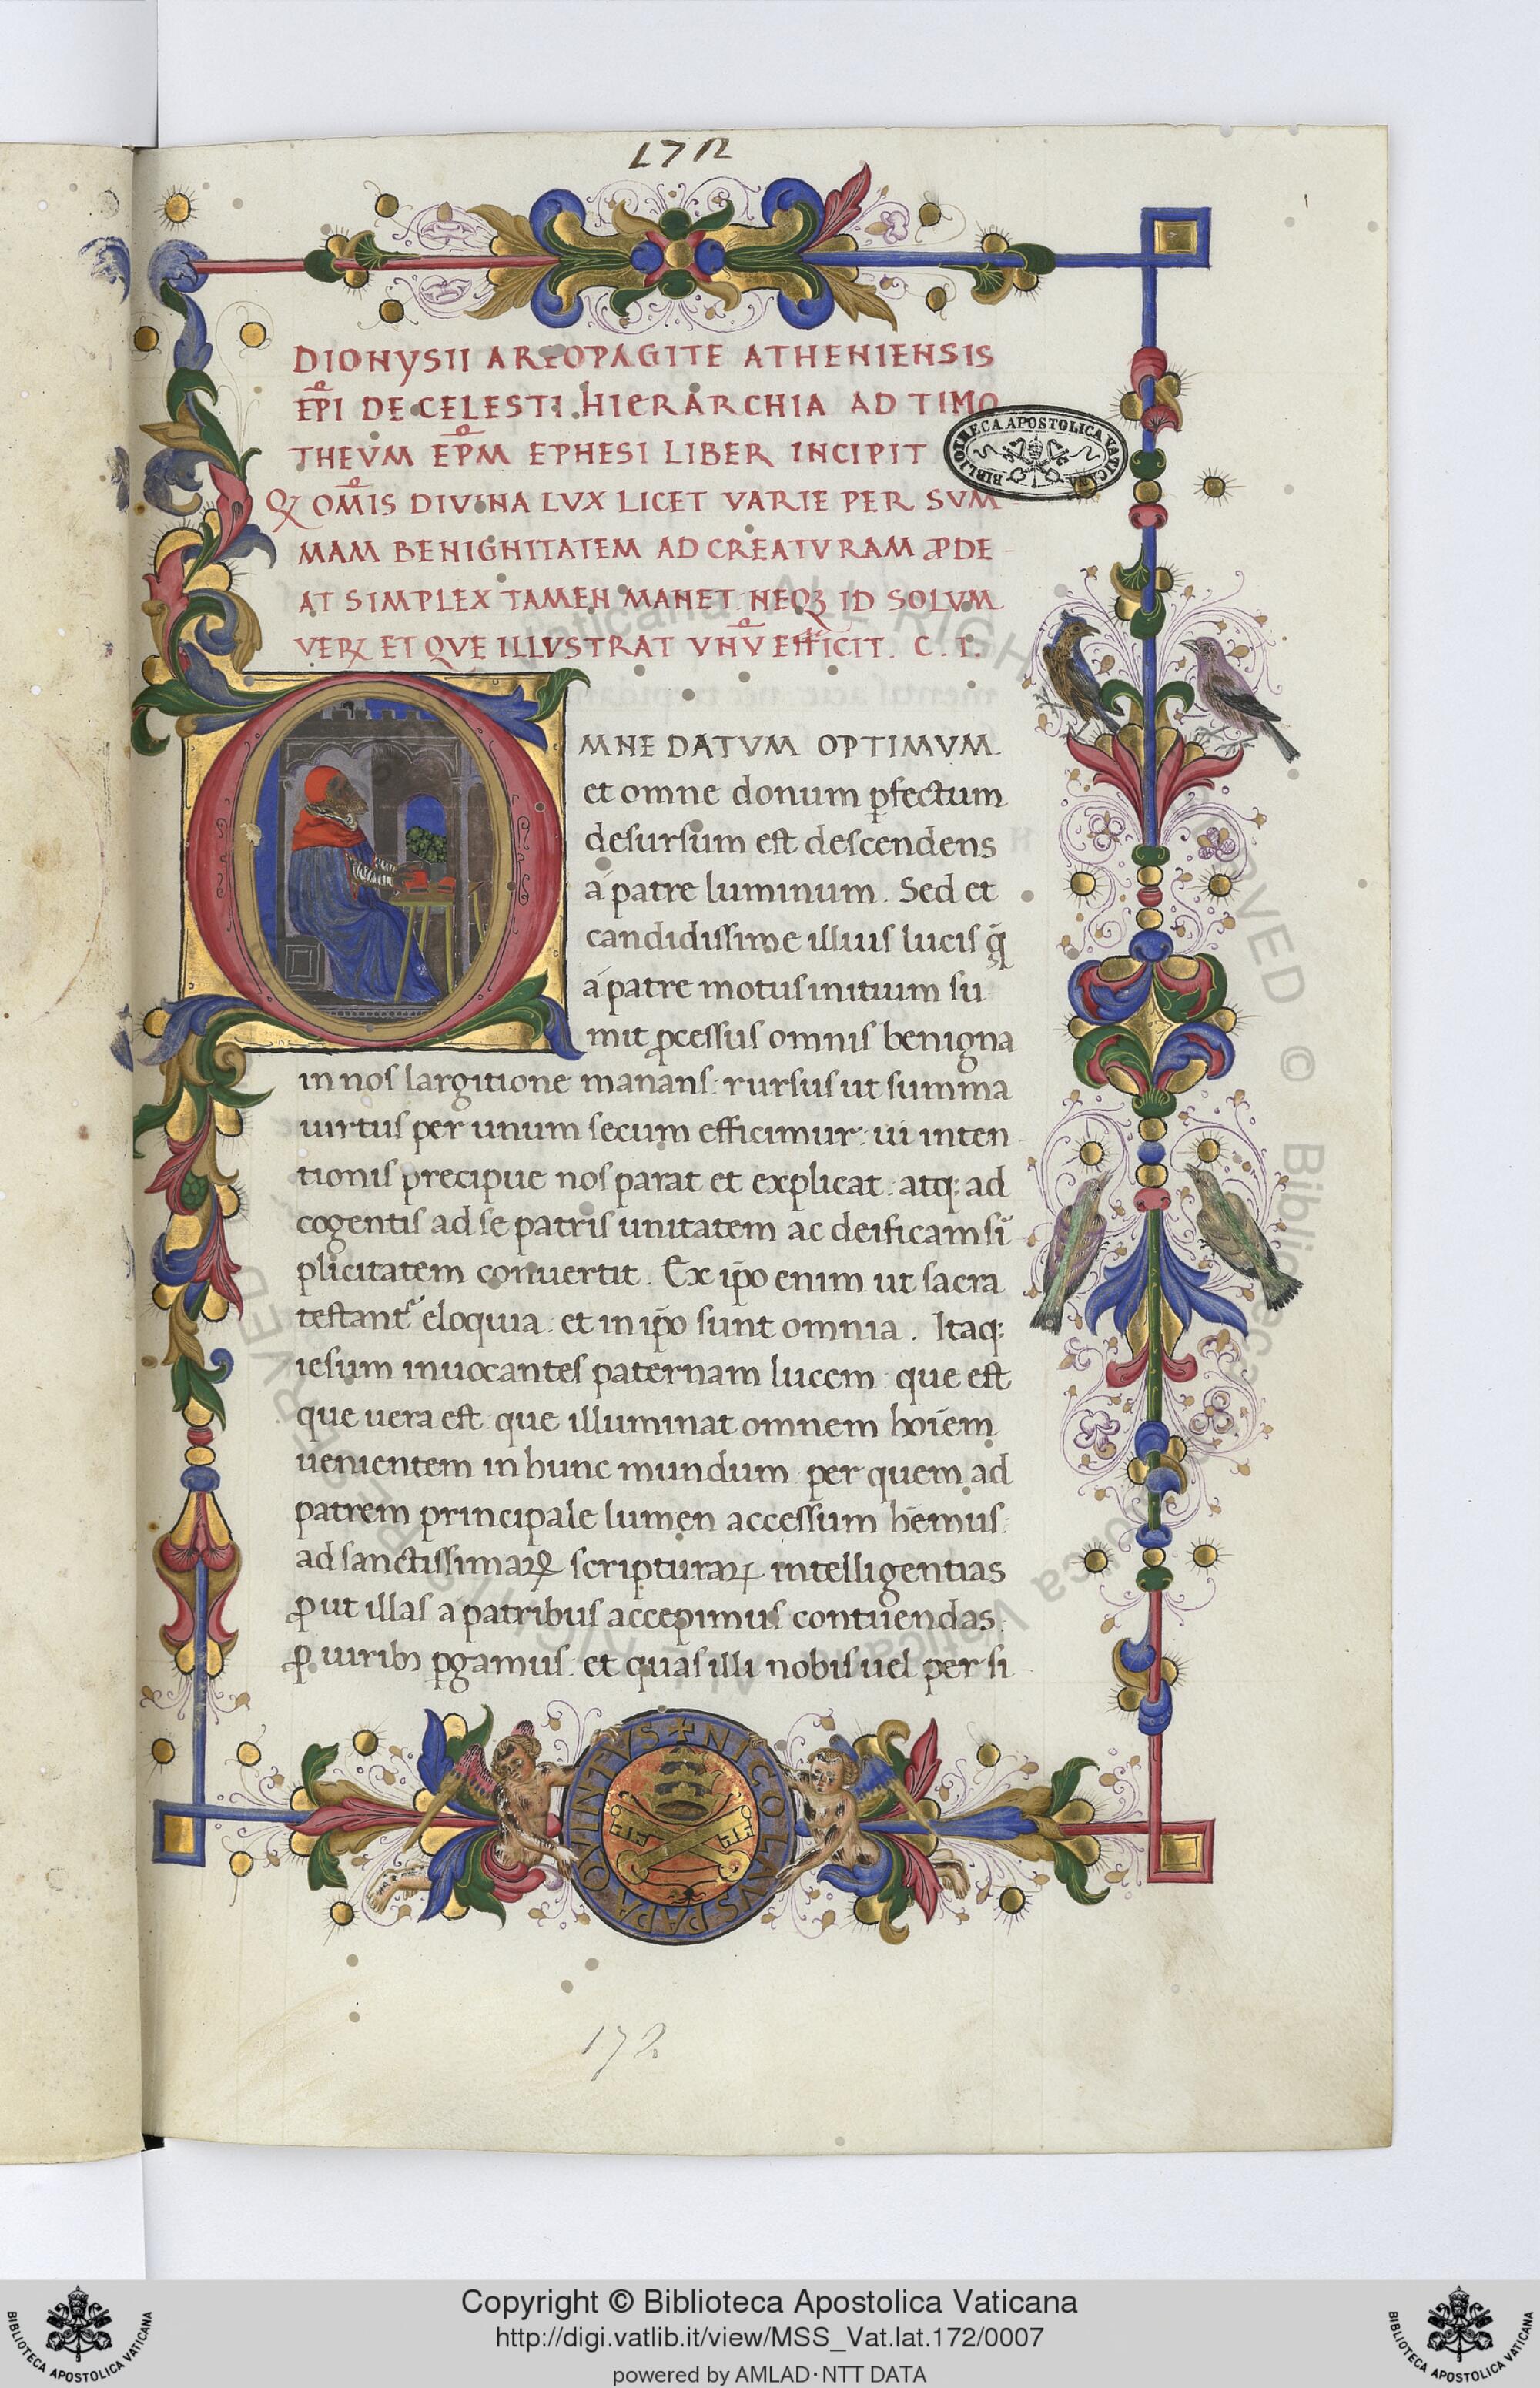 172
1
DIONYSII AREOPAGITE ATHENIENSIS
EP̄I DE CELESTI HIERARCHIA AD TIMO
THEVM EP̄M EPHESI LIBER INCIPIT
OM̄IS DIVINA LVX LICET VARIE PER SVM
MAM BENIGNITATEM AD CREATVRAM ꝒDE
AT SIMPLEX TAMEN MANET NEQꝫ ID SOLVM
VEꝝ ET QVE ILLVSTRAT VNV̄ EFFICIT. C. I.
BIBLIOTHECA APOSTOLICA VATICANA
OMNE DATVM OPTIMVM
et omne donum ꝑfectum
desursum est descendens
a patre luminum. Sed et
candidissime illius lucis q̄
a patre motus initium su
mit ꝓcessus omnis benigna
in nos largitione manans: rursus ut summa
uirtus per unum secum efficimur: ui inten
tionis precipue nos parat et explicat: atq: ad
cogentis ad se patris unitatem ac deificam si̅
plicitatem conuertit. Ex ip̅o enim ut sacra
testantᷣ eloquia: et in ip̅o sunt omnia. Itaq:
iesum inuocantes paternam lucem: que est
que uera est: que illuminat omnem hoi̅em
uenientem in hunc mundum: per quem ad
patrem principale lumen accessum he̅mus:
ad sanctissimaꝝ scripturaꝝ intelligentias
ꝓut illas a patribus accepimus contuendas
ꝓ uiribꝫ ꝑgamus: et quas illi nobis uel per si
✚ NICOLAVS PAPA QVINTVS
172
Copyright © Biblioteca Apostolica Vaticana
http://digi.vatlib.it/view/MSS_Vat.lat.172/0007
powered by AMLAD·NTT DATA
BIBLIOTECA APOSTOLICA VATICANA
BIBLIOTECA APOSTOLICA VATICANA